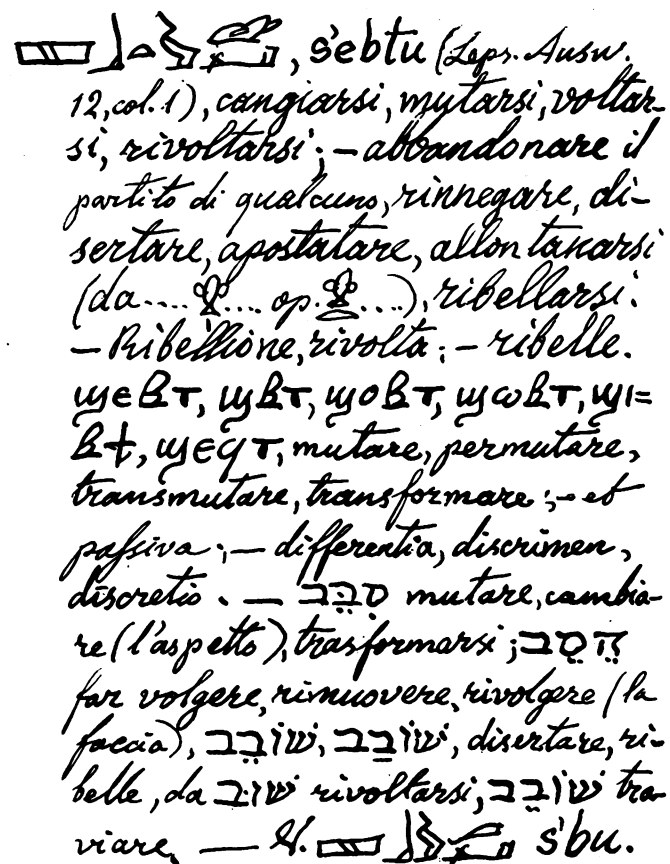 𓈙𓃀𓏏, šebtu (Leps. Ausw.
12, col. 1), cangiarsi, mutarsi, voltar-
si, rivoltarsi; – abbandonare il
partito di qualcuno, rinnegare, di-
sertare, apostatare, allontanarsi
(da .... .... op. ....), ribellarsi.
– Ribellione, rivolta; – ribelle.
ϣⲉⲃⲧ, ϣⲃⲧ, ϣⲟⲃⲧ, ϣⲱⲃⲧ, ϣⲓ=
ⲃϯ, ϣⲉϥⲧ, mutare, permutare,
transmutare, transformare; – et
passiva; – differentia, discrimen,
discretio. — סִבֵּב mutare, cambia-
re (l'aspetto), trasformarsi; הֵסֵב
far volgere, rimuovere, rivolgere (la
faccia), שׁוֹבֵב, שׁוֹבַב, disertare, ri-
belle, da שׁוּב rivoltarsi, שׁוֹבֵב tra-
viare, — V. šbu.